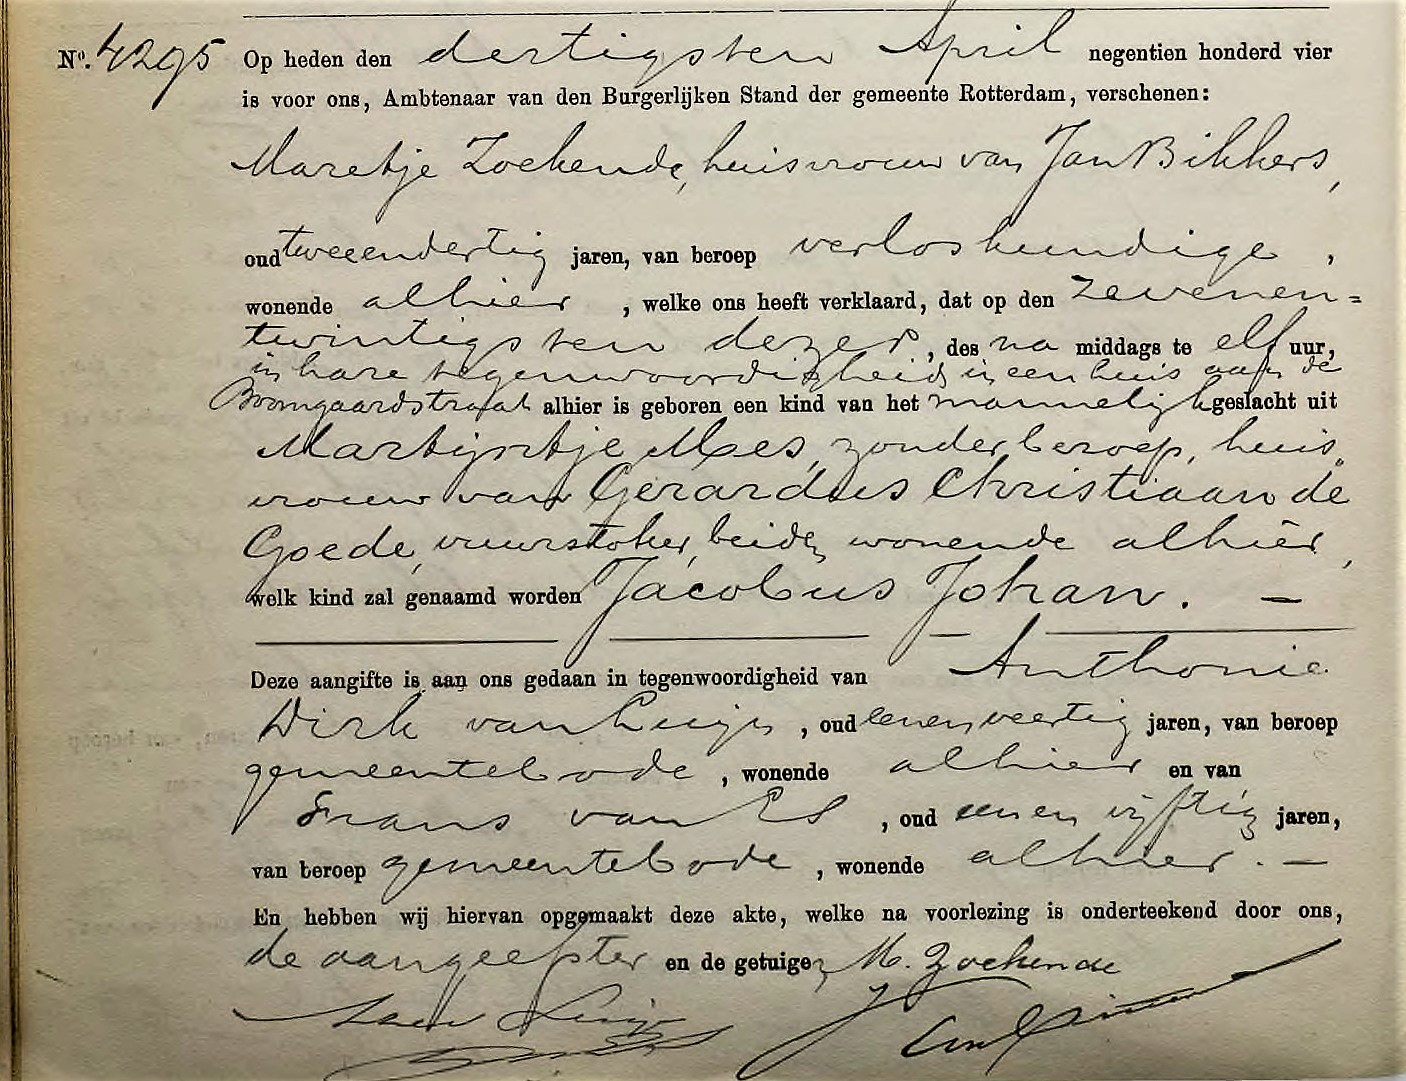 No. 4295 Op heden den dertigsten April negentien honderd vier
is voor ons, Ambtenaar van den Burgerlijken Stand der gemeente Rotterdam, verschenen:
Maretje Zoekende, huisvrouw van Jan Bikkers,
oud tweeendertig jaren, van beroep verloskundige,
wonende alhier, welke ons heeft verklaard, dat op den zevenen=
twintigsten dezer, des na middags te elf uur,
in hare tegenwoordigheid in een huis aan de
Boomgaardstraat alhier is geboren een kind van het mannelijk geslacht uit
Martijntje Mees, zonder beroep, huis„
vrouw van Gerardus Christiaan de
Goede, vuurstoker, beiden wonende alhier,
welk kind zal genaamd worden Jacobus Johan. —
Deze aangifte is aan ons gedaan in tegenwoordigheid van Anthonie
Dirk van Luijn, oud zevenenveertig jaren, van beroep
gemeentebode, wonende alhier en van
Frans van Es, oud zevenenvijftig jaren,
van beroep gemeentebode, wonende alhier. —
En hebben wij hiervan opgemaakt deze akte, welke na voorlezing is onderteekend door ons,
de aangeefster en de getuigen M. Zoekende